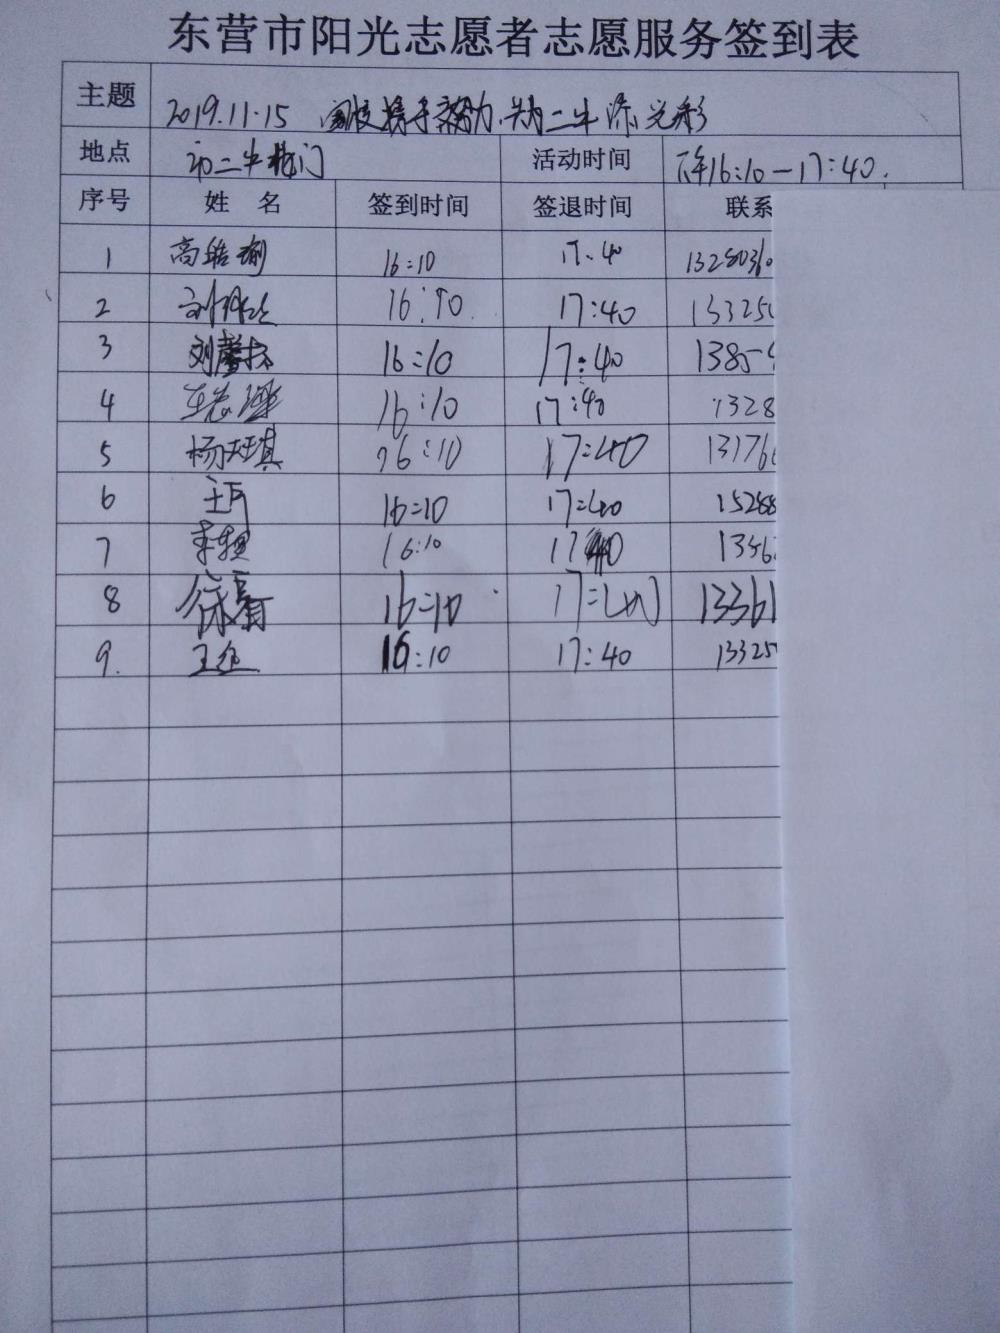 东营市阳光志愿者志愿服务签到表
主题 2019.11.15 家校携手齐努力,共为二中添光彩
地点 初二中校门 活动时间 下午16:10-17:40.
序号 姓 名 签到时间 签退时间 联系
1 高 16:10 17.40 13280360
2 刘 16:10 17:40 133250
3 刘馨 16:10 17:40 1385
4 16:10 17:40 1328
5 杨天琪 16:10 17:40 13176
6 王珂 16:10 17:40 15288
7 李 16:10 17:40 1356
8 徐 16:10 17:40 13361
9. 王 16:10 17:40 13325